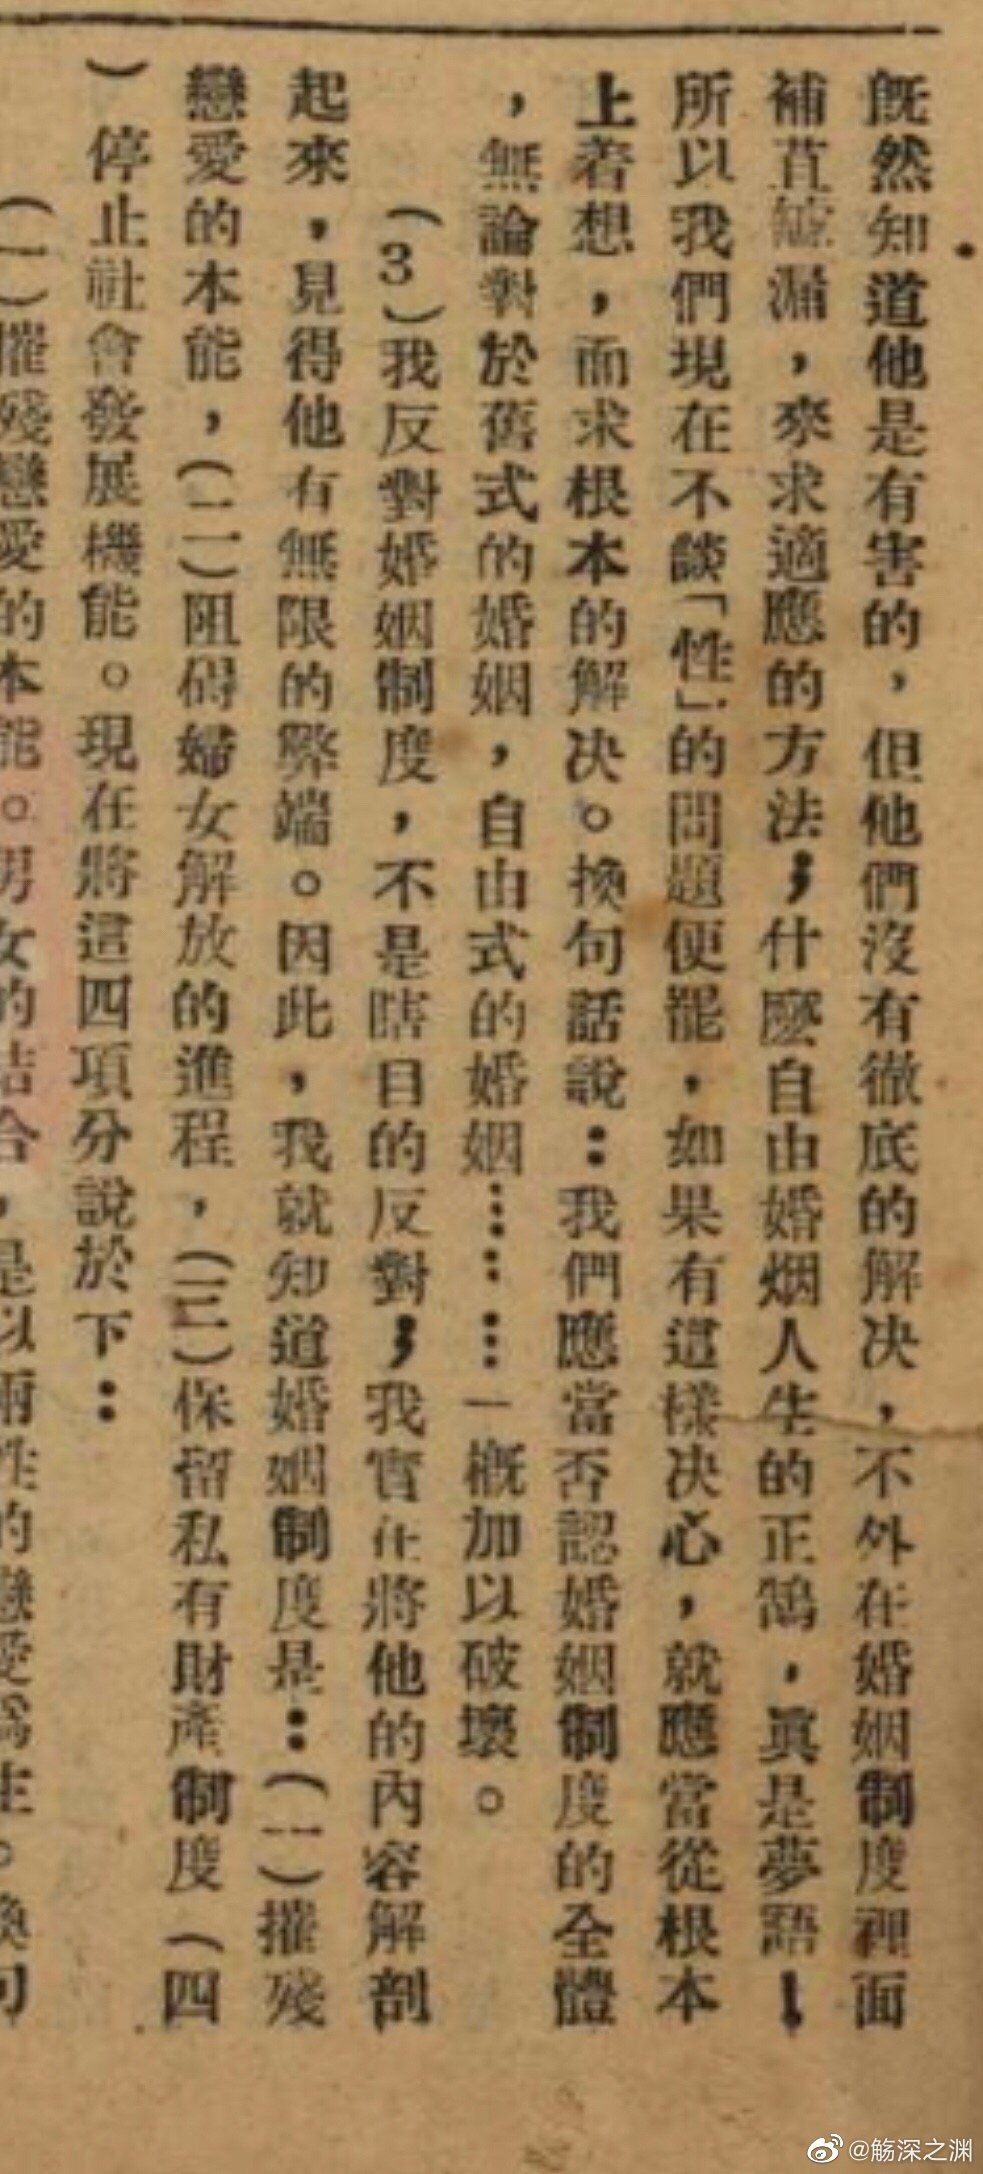 既然知道他是有害的，但他們沒有徹底的解决，不外在婚姻制度裡面
補苴罅漏，來求適應的方法；什麼自由婚烟人生的正鵠，眞是夢語！
所以我們現在不談「性」的問題便罷，如果有這樣决心，就應當從根本
上着想，而求根本的解决。換句話說：我們應當否認婚姻制度的全體
，無論對於舊式的婚姻，自由式的婚姻………一概加以破壞。
（3）我反對婚姻制度，不是瞎目的反對；我實在將他的內容解剖
起來，見得他有無限的弊端。因此，我就知道婚姻制度是：（一）摧殘
戀愛的本能，（二）阻碍婦女解放的進程，（三）保留私有財產制度（四
）停止社會發展機能。現在將這四項分說於下：
（一）摧殘戀愛的本能。男女的結合，是以兩性的戀愛爲主。換句
@觞深之渊